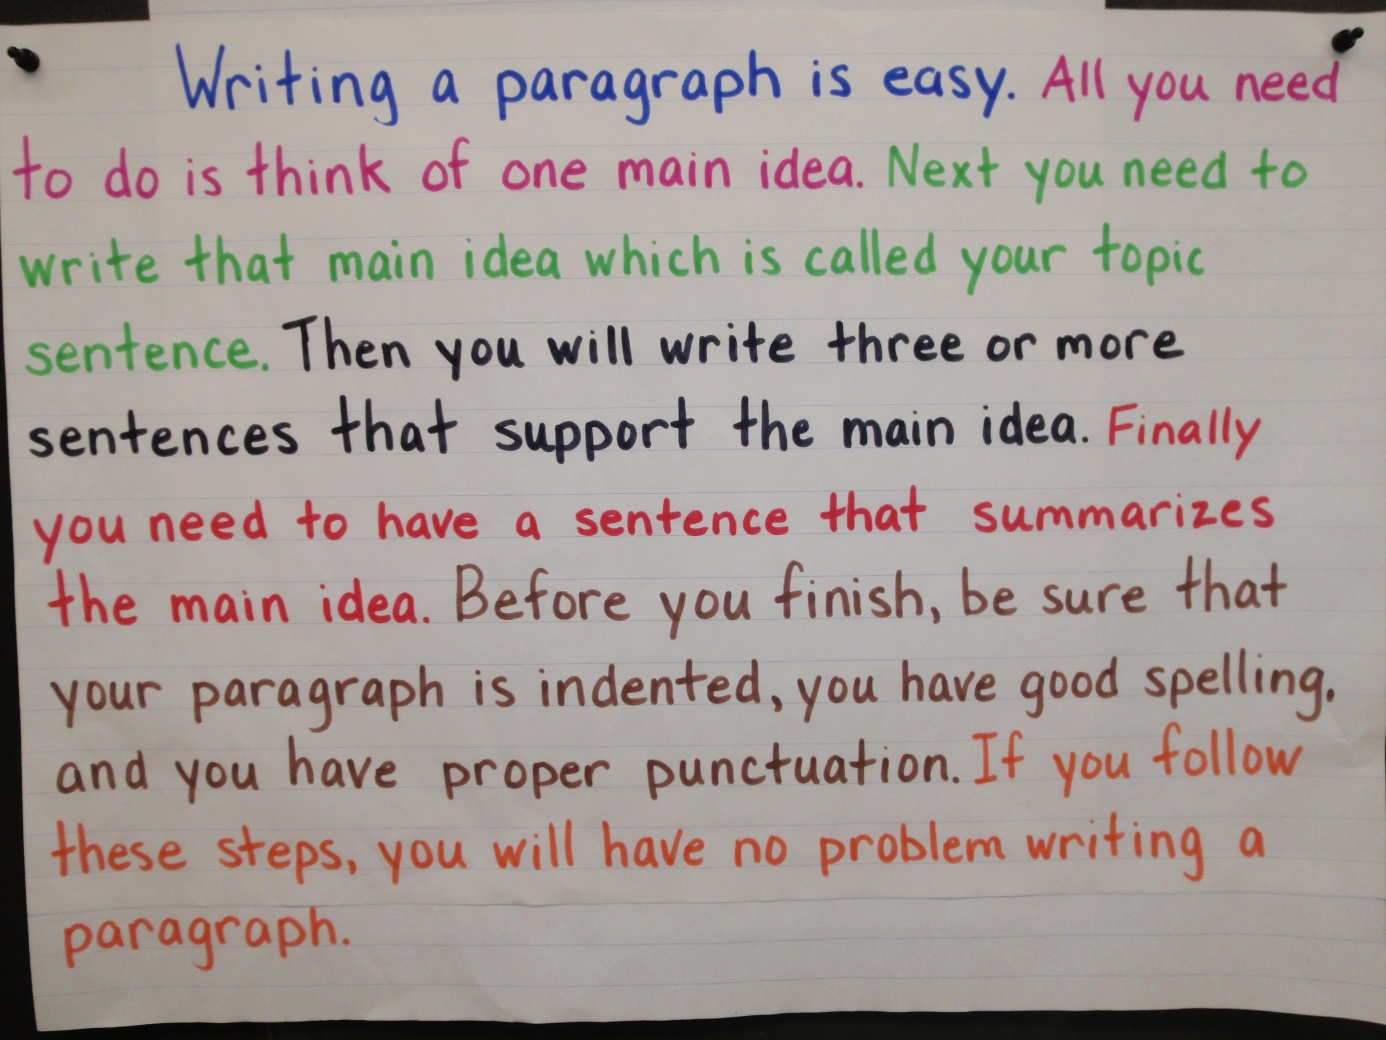 Writing a paragraph is easy. All you need
to do is think of one main idea. Next you need to
write that main idea which is called your topic
sentence. Then you will write three or more
sentences that support the main idea. Finally
you need to have a sentence that summarizes
the main idea. Before you finish, be sure that
your paragraph is indented, you have good spelling,
and you have proper punctuation. If you follow
these steps, you will have no problem writing a
paragraph.